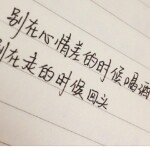 别在心情差的时候喝酒
别在走的时候回头